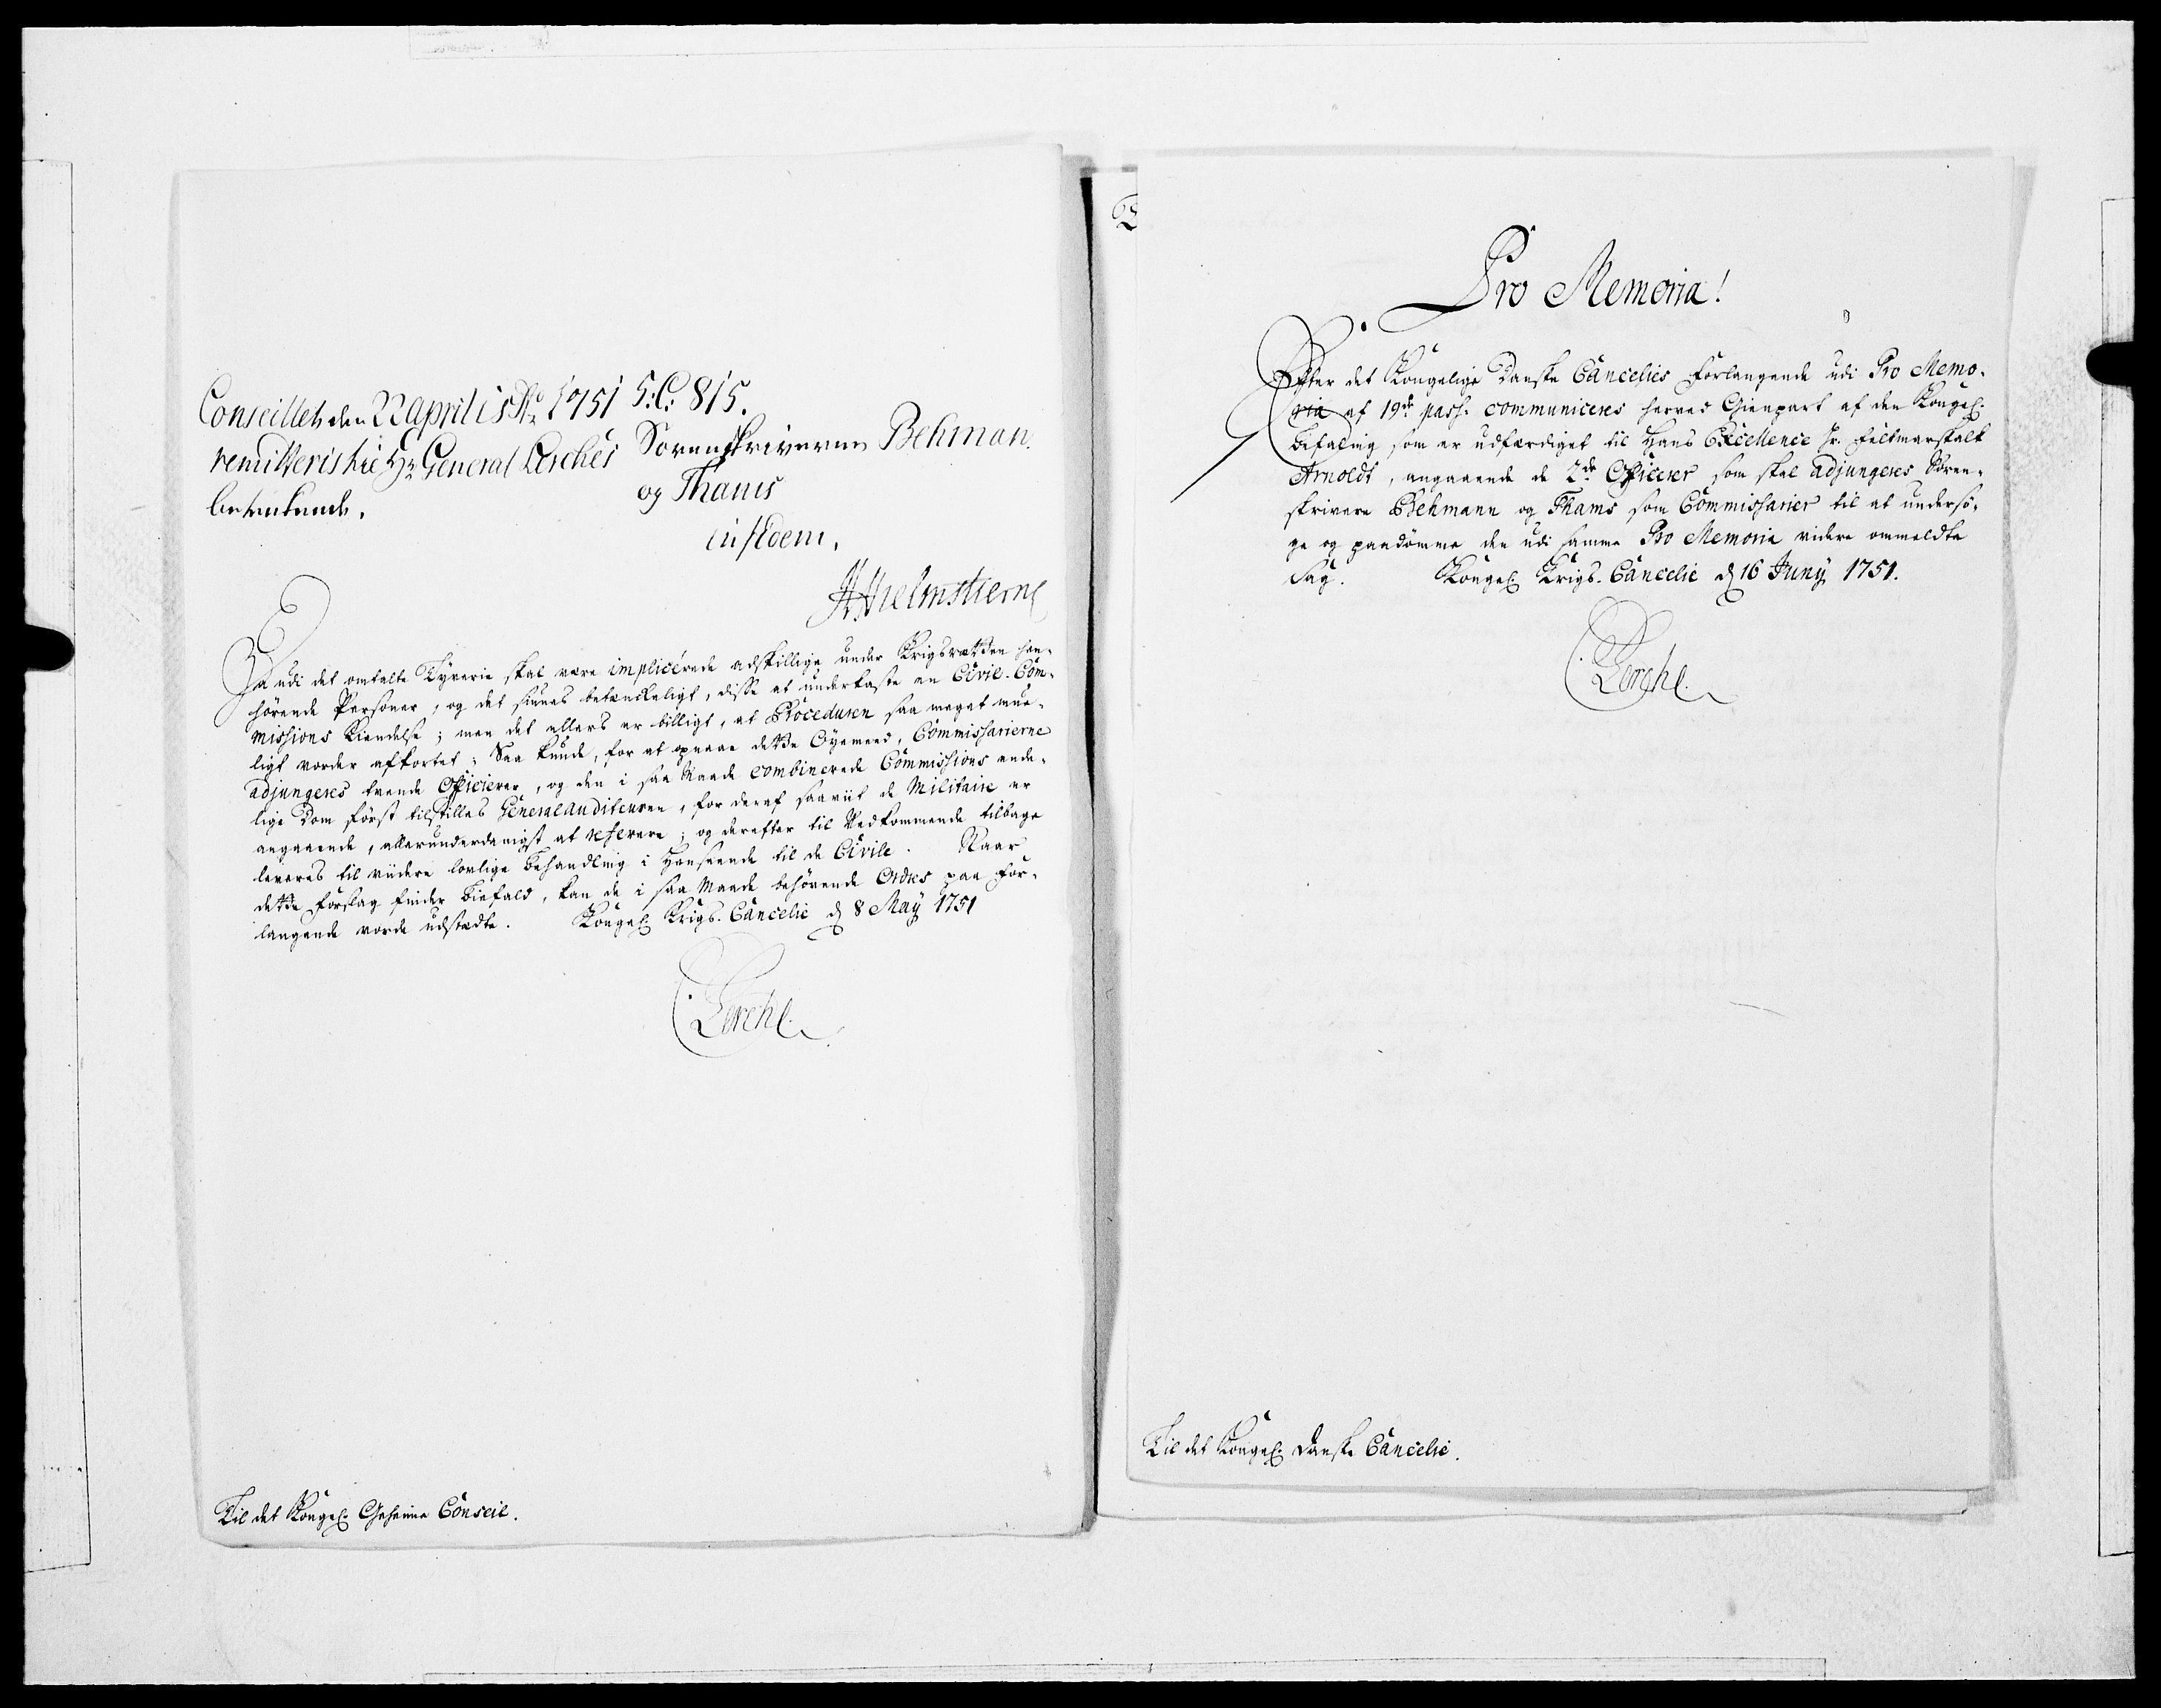 Conseillet den 22 Aprilis Ao 1751
remitteris hie Hr General Lerches
betænkende.
5:C: 815.
Sorenskriverne Behman
og Thams
insidem.
HHielmstierne
Da udi det omtalte Tyverie skal være implicerede adskillige under Krigsretten hen-
hörende Personer, og det siunes betænkeligt, disse at underkaste en Civil-Com-
missions Kiendelse; men det ellers er billigt, at Proceduren saa meget mue-
ligt vorder afkortet; Saa kunde, for at opnaae dette Öyemeed, Commissarierne
adjungeres tvende Officierer, og den i saa Maade combinerede Commissions ende-
lige Dom först tilstilles Generalauditeuren, for deraf saaviit de Militaire er
angaaende, allerunderdanigst at referere; og derefter til Vedkommende tilbage
leveres til viidere lovlige Behandling i Henseende til de Civile. Naar
dette Forslag finder Biefald, kan de i saa Maade behörende Ordres paa For-
langende vorde udstædte. Kongel. Krigs-Cancelie d 8 May 1751
Lerche.
Til det Kongel. Geheime Conseil.
Pro Memoria!
Efter det Kongelige Danske Cancelies Forlangende udi Pro Memo-
ria af 19de pass. communiceres herved Gienpart af den Kongel.
Befaling som er udfærdiget til Hans Excellence Hr. Feltmarskalk
Arnoldt, angaaende de 2de Officerer som skal adjungeres Soren-
skriverne Behmann og Thams som Commissarier til at undersö-
ge og paadömme den udi samme Pro Memoria videre ommeldte
Sag. Kongel. Krigs-Cancelie d 16 Juny 1751.
Lerche.
Til det Kongel. Danske Cancelie.